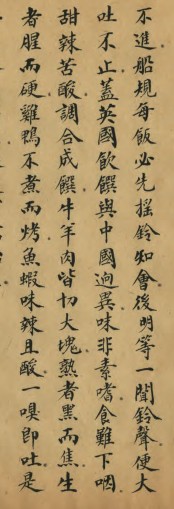 不進船規每飯必先搖鈴知會後明等一聞鈴聲便大
吐不止蓋英國飲饌與中國迥異味非素嗜食難下咽
甜辣苦酸調合成饌牛羊肉皆切大塊熟者黑而焦生
者腥而硬雞鴨不煮而烤魚蝦味辣且酸一嗅即吐是